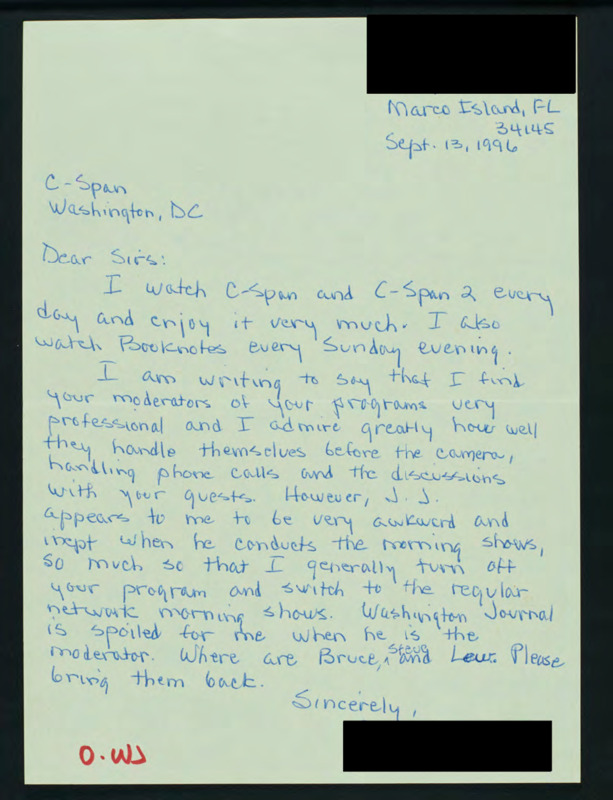 Marco Island, FL
34145
Sept. 13, 1996
C-Span
Washington, DC
Dear Sirs:
I watch C-Span and C-Span 2 every
day and enjoy it very much. I also
watch Booknotes every Sunday evening.
I am writing to say that I find
your moderators of your programs very
professional and I admire greatly how well
they handle themselves before the camera,
handling phone calls and the discussions
with your guests. However, J. J.
appears to me to be very awkward and
inept when he conducts the morning shows,
so much so that I generally turn off
your program and switch to the regular
network morning shows. Washington Journal
is spoiled for me when he is the
moderator. Where are Bruce, Steve and Lew. Please
bring them back.
Sincerely,
O.WJ